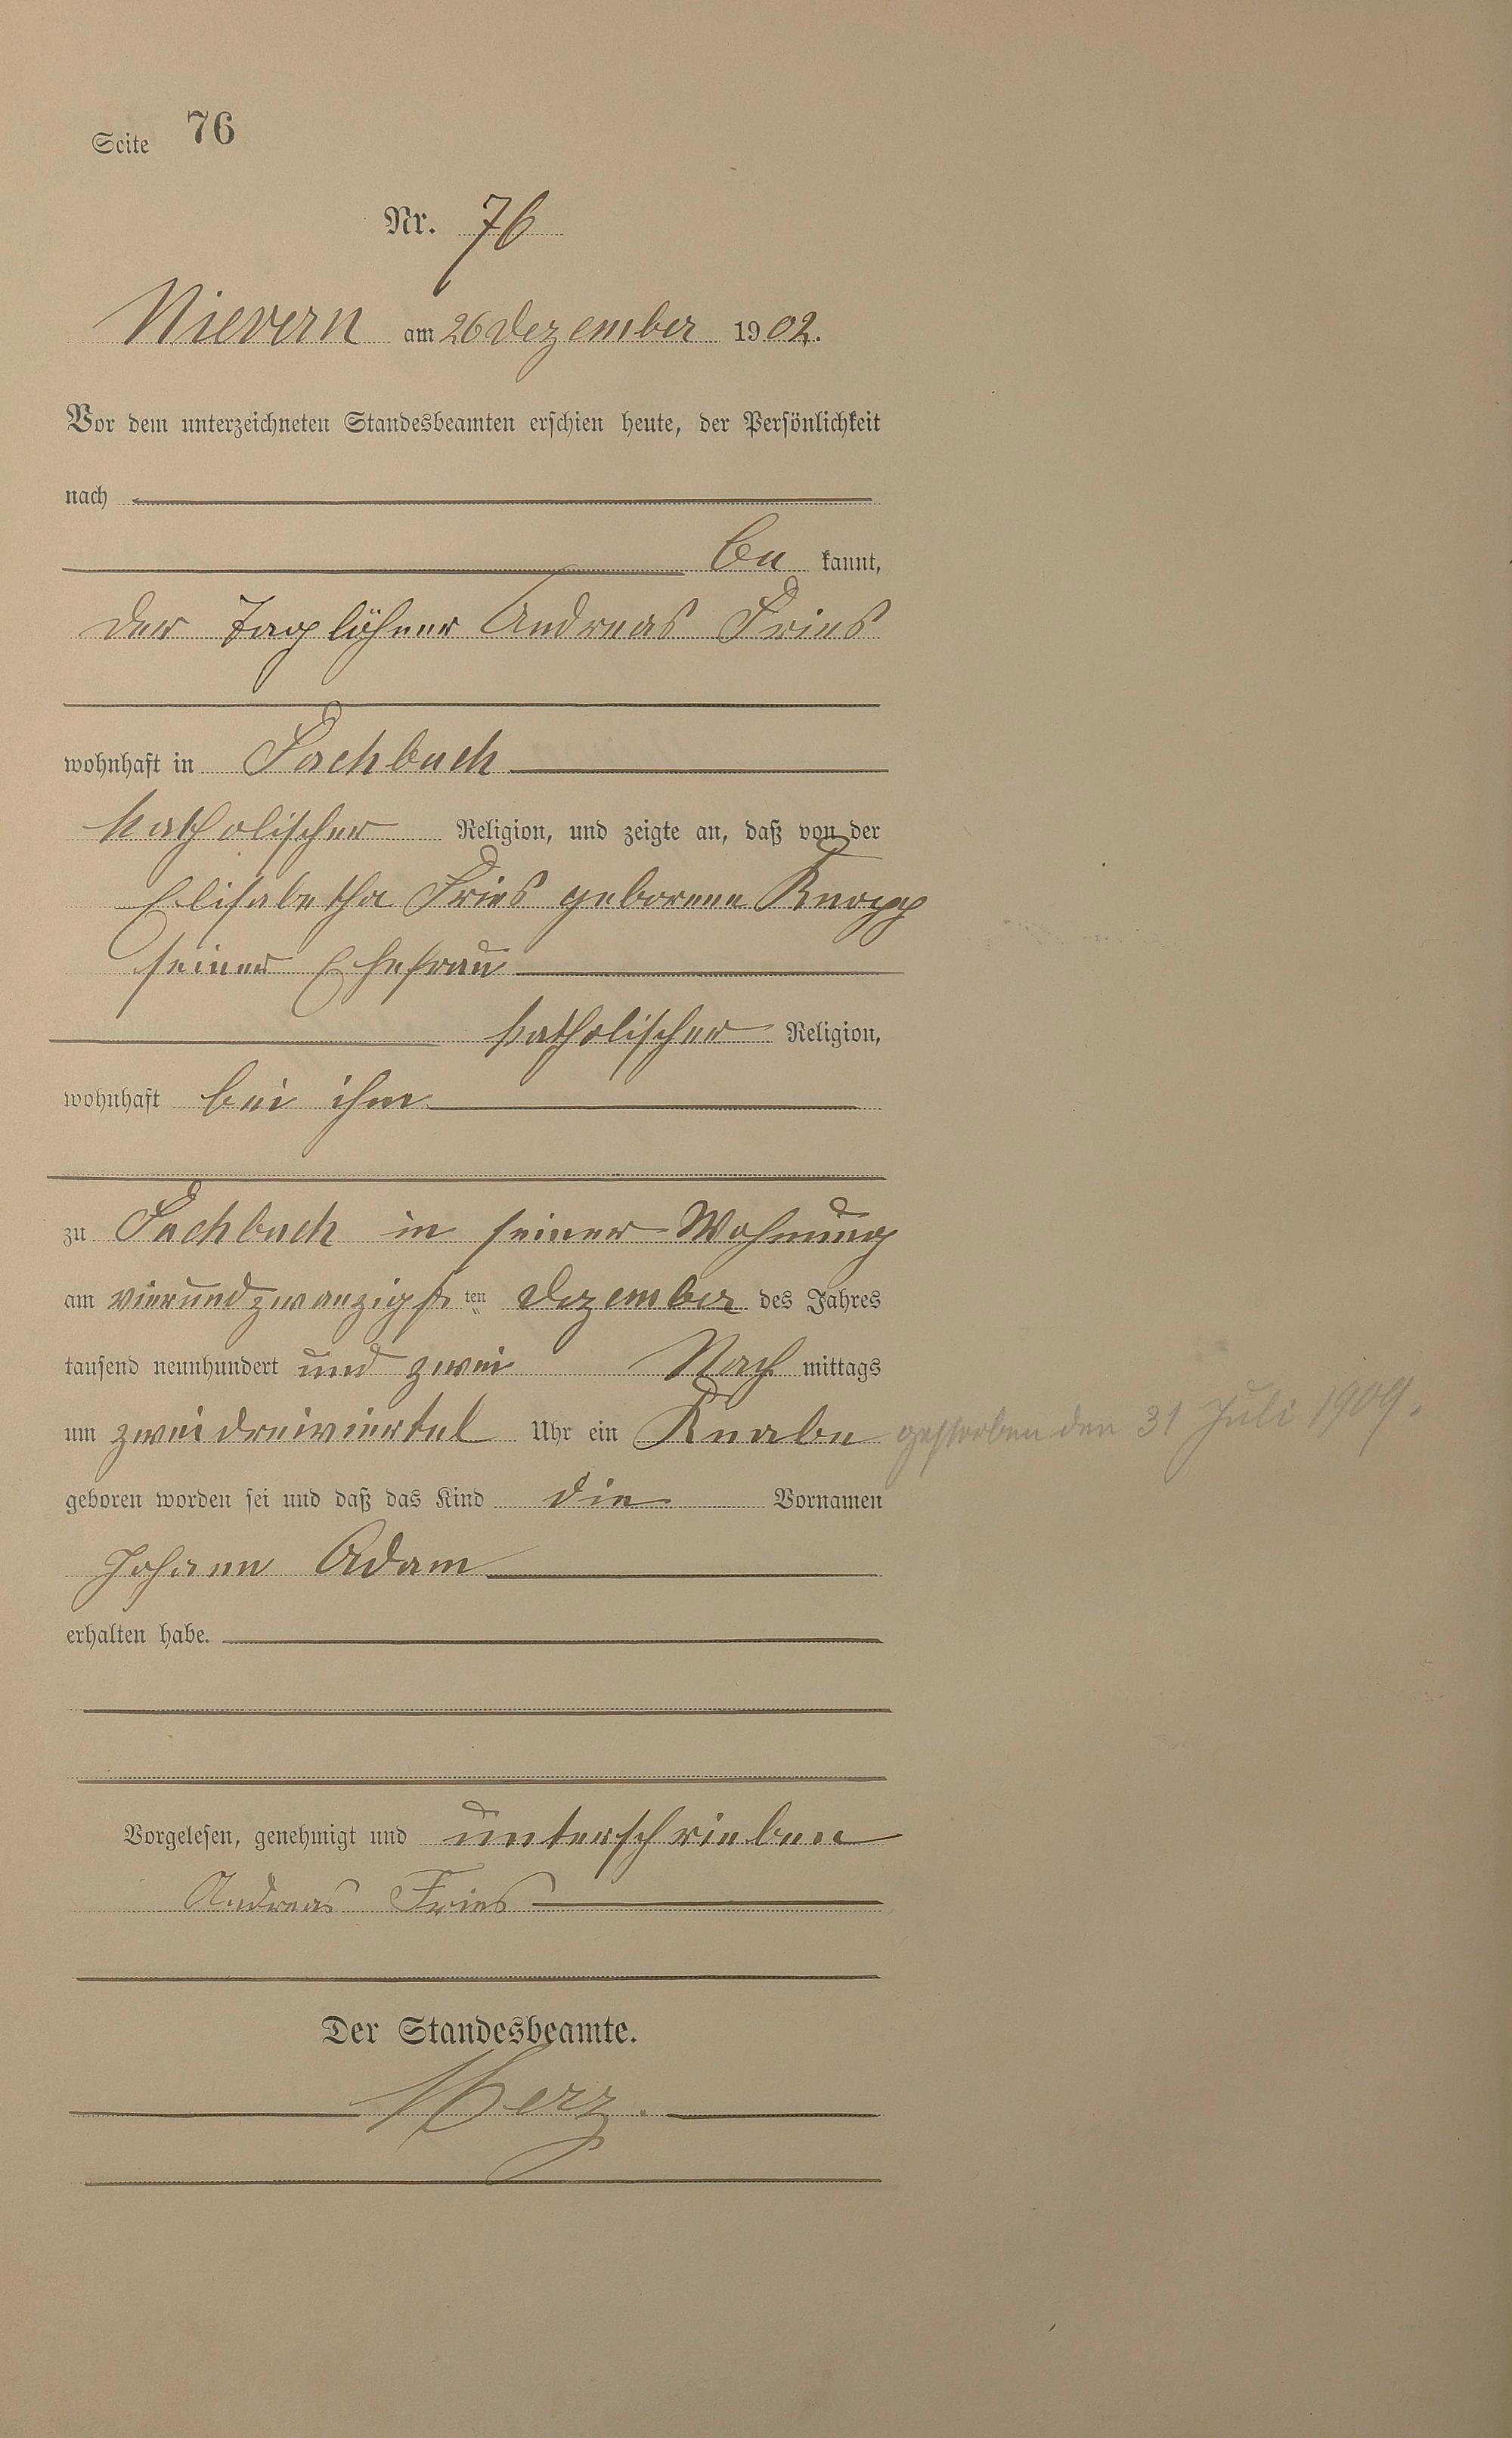 Seite 76
Nr. 76
Nievern am 26 Dezember 1902.
Vor dem unterzeichneten Standesbeamten erschien heute, der Persönlichkeit
nach
be kannt,
der Taglöhner Andreas Fries
wohnhaft in Fachbach
katholischer Religion, und zeigte an, daß von der
Elisabetha Fries geborene Knopp
seiner Ehefrau
katholischer Religion,
wohnhaft bei ihm
zu Fachbach in seiner Wohnung
am vierundzwanzigsten Dezember des Jahres
tausend neunhundert und zwei Nach mittags
um zwei dreiviertel Uhr ein Knabe gestorben den 31 Juli 1909.
geboren worden sei und daß das Kind die Vornamen
Johann Adam
erhalten habe.
Vorgelesen, genehmigt und unterschrieben
Andreas Fries
Der Standesbeamte.